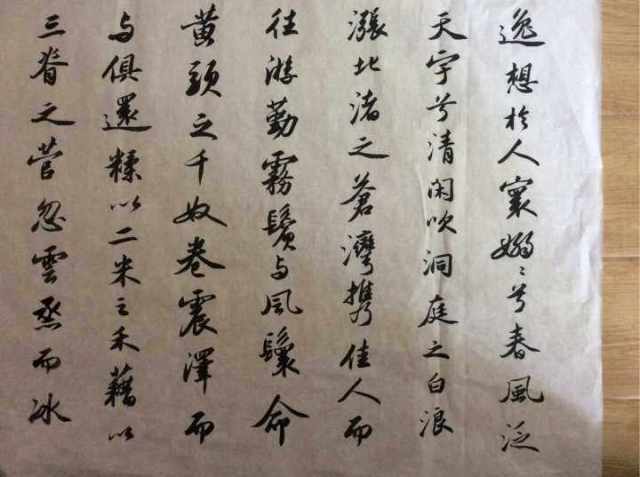 逸想於人寰嫋〻兮春風泛
天宇兮清閑吹洞庭之白浪
漲北渚之蒼灣携佳人而
往游勤霧鬢与風鬟命
黃頭之千奴卷震澤而
与俱還糅以二米之禾藉以
三脊之菅忽雲烝而冰